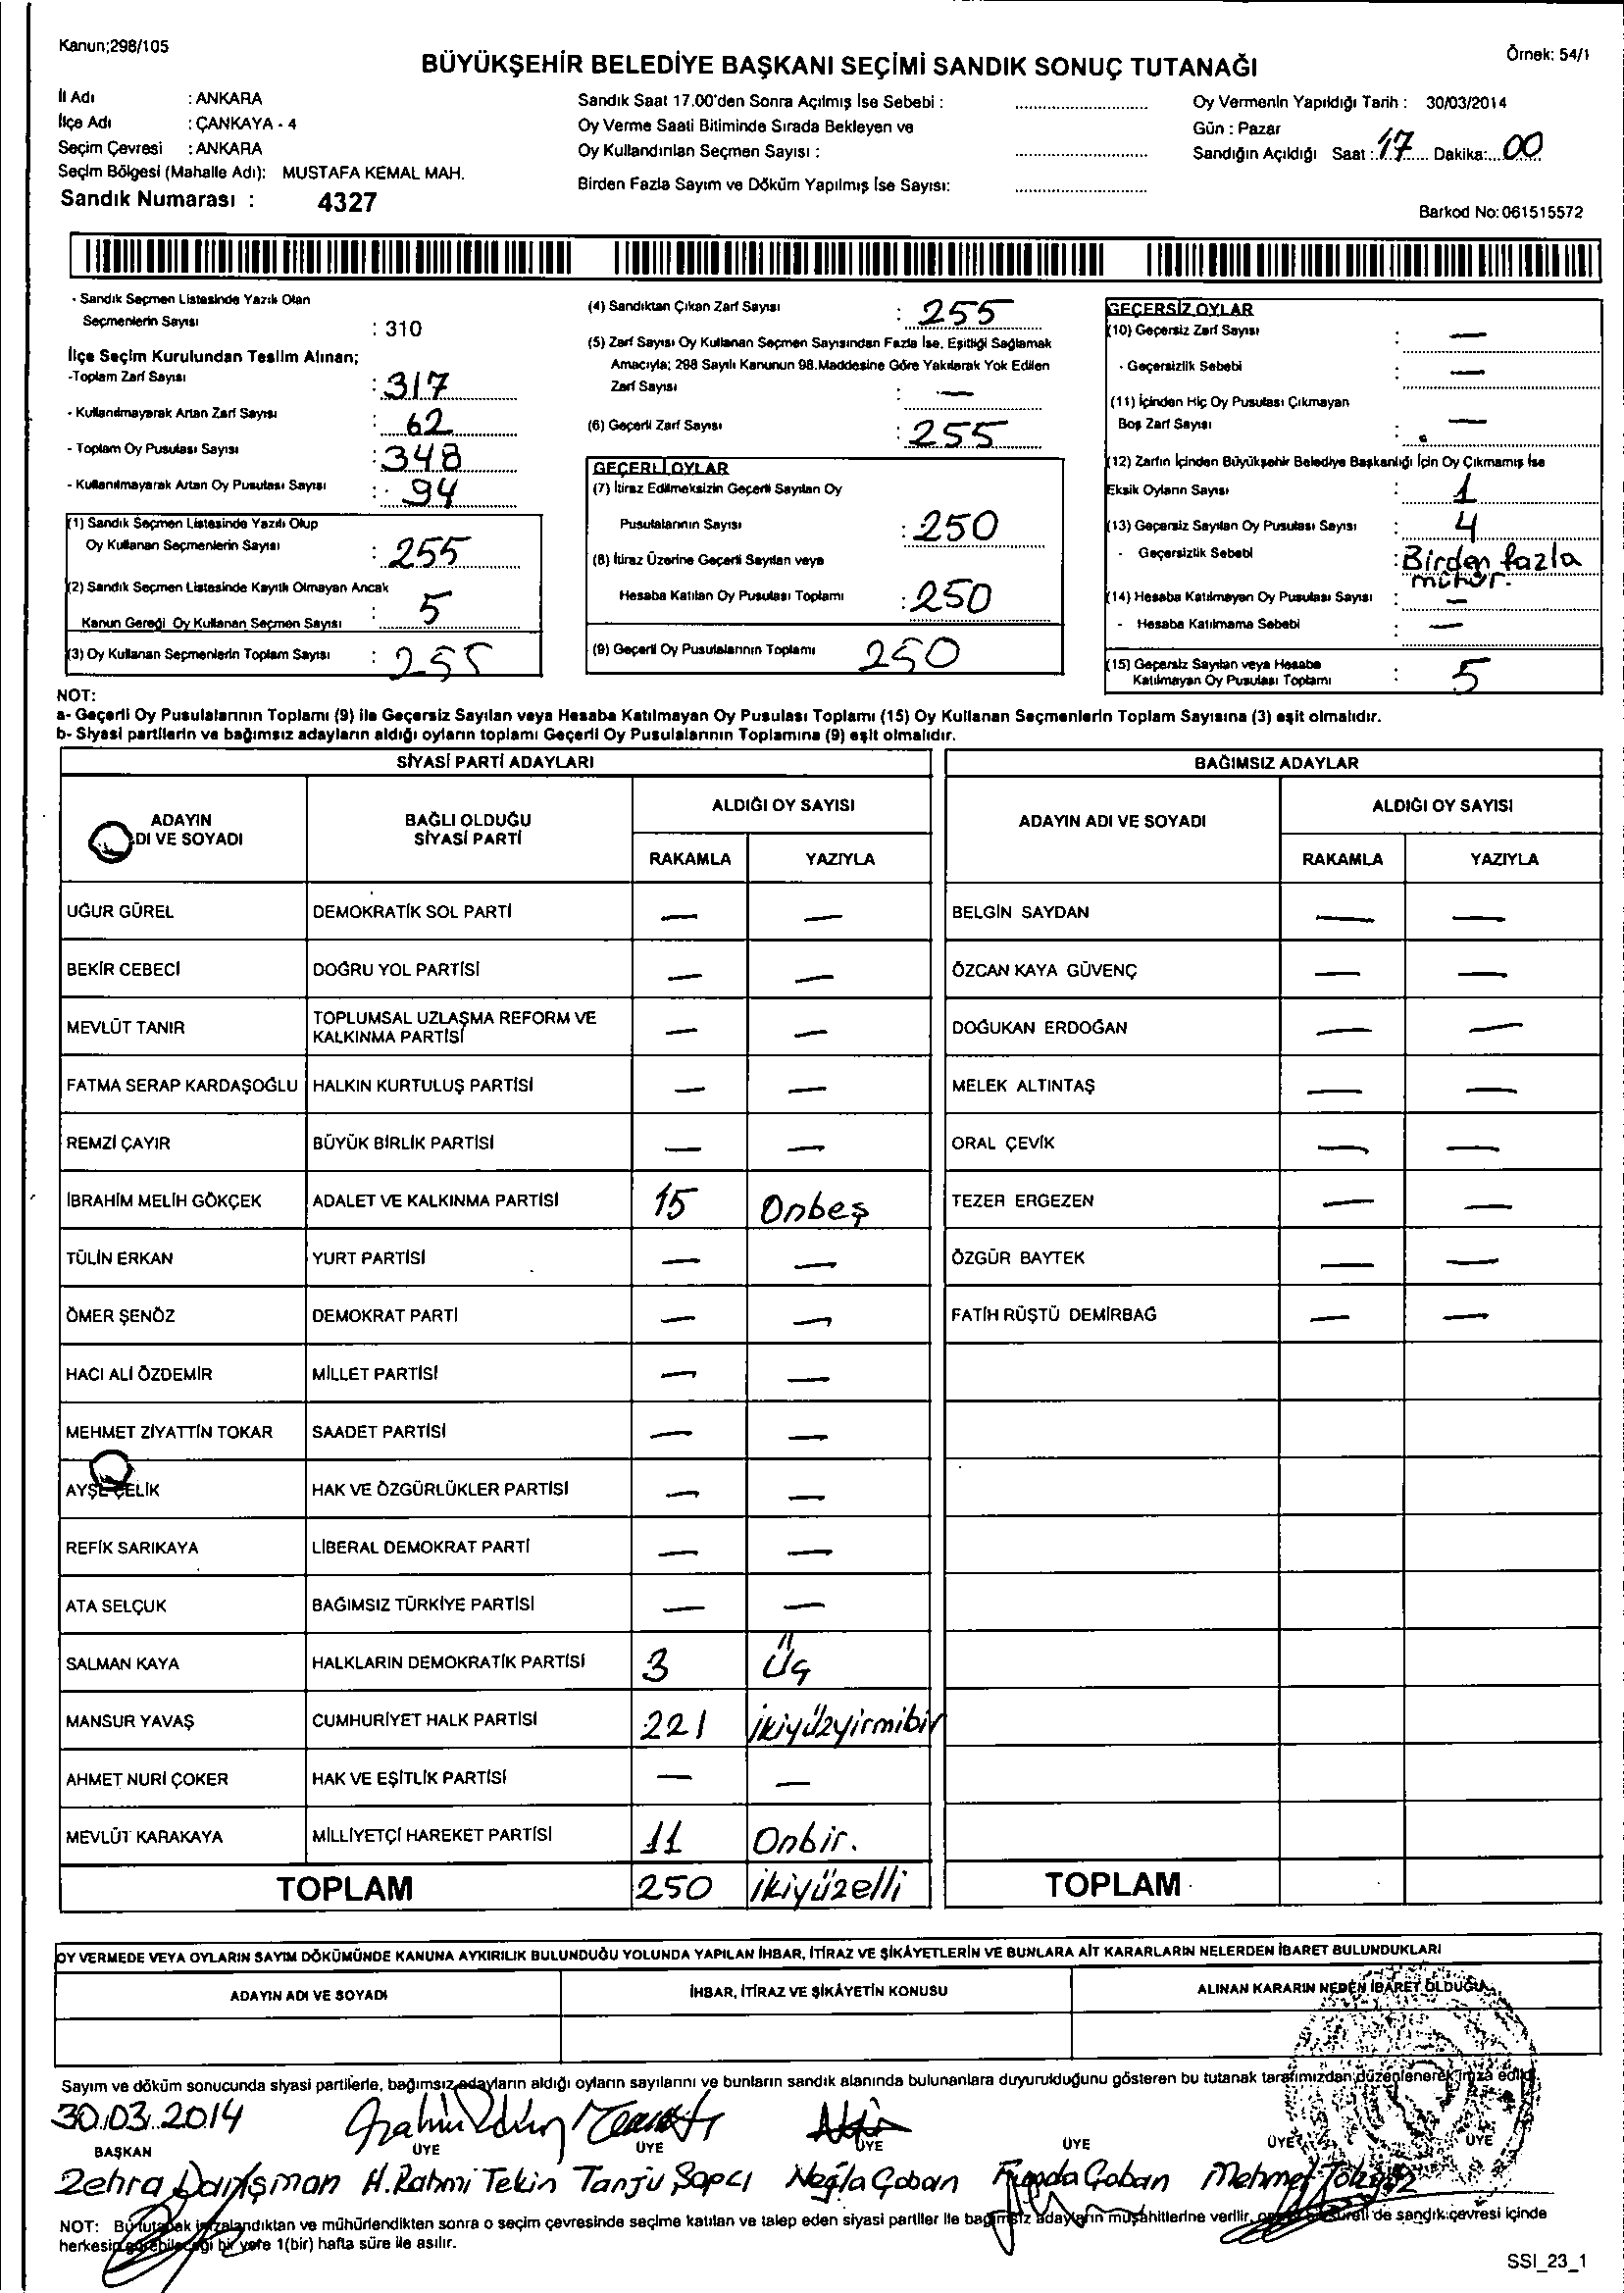 Kanun;298/105
Örnek: 54/1
BÜYÜKŞEHİR BELEDİYE BAŞKANI SEÇİMİ SANDIK SONUÇ TUTANAĞI
İl Adı : ANKARA
İlçe Adı : ÇANKAYA - 4
Seçim Çevresi : ANKARA
Seçim Bölgesi (Mahalle Adı): MUSTAFA KEMAL MAH.
Sandık Numarası : 4327
Sandık Saat 17.00'den Sonra Açılmış İse Sebebi :
Oy Verme Saati Bitiminde Sırada Bekleyen ve
Oy Kullandırılan Seçmen Sayısı :
Birden Fazla Sayım ve Döküm Yapılmış İse Sayısı:
Oy Vermenin Yapıldığı Tarih : 30/03/2014
Gün : Pazar
Sandığın Açıldığı Saat : 17 Dakika: 00
Barkod No: 061515572
- Sandık Seçmen Listesinde Yazılı Olan
Seçmenlerin Sayısı : 310
İlçe Seçim Kurulundan Teslim Alınan;
-Toplam Zarf Sayısı : 317
- Kullanılmayarak Artan Zarf Sayısı : 62
- Toplam Oy Pusulası Sayısı : 348
- Kullanılmayarak Artan Oy Pusulası Sayısı : 94
(1) Sandık Seçmen Listesinde Yazılı Olup
Oy Kullanan Seçmenlerin Sayısı : 255
(2) Sandık Seçmen Listesinde Kayıtlı Olmayan Ancak
Kanun Gereği Oy Kullanan Seçmen Sayısı : 5
(3) Oy Kullanan Seçmenlerin Toplam Sayısı : 255
(4) Sandıktan Çıkan Zarf Sayısı : 255
(5) Zarf Sayısı Oy Kullanan Seçmen Sayısından Fazla İse, Eşitliği Sağlamak
Amacıyla; 298 Sayılı Kanunun 98.Maddesine Göre Yakılarak Yok Edilen
Zarf Sayısı : —
(6) Geçerli Zarf Sayısı : 255
GEÇERLİ OYLAR
(7) İtiraz Edilmeksizin Geçerli Sayılan Oy
Pusulalarının Sayısı : 250
(8) İtiraz Üzerine Geçerli Sayılan veya
Hesaba Katılan Oy Pusulası Toplamı : 250
(9) Geçerli Oy Pusulalarının Toplamı 250
GEÇERSİZ OYLAR
(10) Geçersiz Zarf Sayısı : —
- Geçersizlik Sebebi : —
(11) İçinden Hiç Oy Pusulası Çıkmayan
Boş Zarf Sayısı : —
(12) Zarfın İçinden Büyükşehir Belediye Başkanlığı İçin Oy Çıkmamış İse
Eksik Oyların Sayısı : 1
(13) Geçersiz Sayılan Oy Pusulası Sayısı : 4
- Geçersizlik Sebebi : Birden fazla
mühür.
(14) Hesaba Katılmayan Oy Pusulası Sayısı : —
- Hesaba Katılmama Sebebi : —
(15) Geçersiz Sayılan veya Hesaba
Katılmayan Oy Pusulası Toplamı : 5
NOT:
a- Geçerli Oy Pusulalarının Toplamı (9) ile Geçersiz Sayılan veya Hesaba Katılmayan Oy Pusulası Toplamı (15) Oy Kullanan Seçmenlerin Toplam Sayısına (3) eşit olmalıdır.
b- Siyasi partilerin ve bağımsız adayların aldığı oyların toplamı Geçerli Oy Pusulalarının Toplamına (9) eşit olmalıdır.
SİYASİ PARTİ ADAYLARI
ADAYIN
DI VE SOYADI
BAĞLI OLDUĞU
SİYASİ PARTİ
ALDIĞI OY SAYISI
RAKAMLA YAZIYLA
UĞUR GÜREL DEMOKRATİK SOL PARTİ — —
BEKİR CEBECİ DOĞRU YOL PARTİSİ — —
MEVLÜT TANIR TOPLUMSAL UZLAŞMA REFORM VE
KALKINMA PARTİSİ — —
FATMA SERAP KARDAŞOĞLU HALKIN KURTULUŞ PARTİSİ — —
REMZİ ÇAYIR BÜYÜK BİRLİK PARTİSİ — —
İBRAHİM MELİH GÖKÇEK ADALET VE KALKINMA PARTİSİ 15 Onbeş
TÜLİN ERKAN YURT PARTİSİ — —
ÖMER ŞENÖZ DEMOKRAT PARTİ — —
HACI ALİ ÖZDEMİR MİLLET PARTİSİ — —
MEHMET ZİYATTİN TOKAR SAADET PARTİSİ — —
AYŞE ÇELİK HAK VE ÖZGÜRLÜKLER PARTİSİ — —
REFİK SARIKAYA LİBERAL DEMOKRAT PARTİ — —
ATA SELÇUK BAĞIMSIZ TÜRKİYE PARTİSİ — —
SALMAN KAYA HALKLARIN DEMOKRATİK PARTİSİ 3 Üç
MANSUR YAVAŞ CUMHURİYET HALK PARTİSİ 221 İkiyüzyirmibir
AHMET NURİ ÇOKER HAK VE EŞİTLİK PARTİSİ — —
MEVLÜT KARAKAYA MİLLİYETÇİ HAREKET PARTİSİ 11 Onbir.
TOPLAM 250 ikiyüzelli
BAĞIMSIZ ADAYLAR
ADAYIN ADI VE SOYADI
ALDIĞI OY SAYISI
RAKAMLA YAZIYLA
BELGİN SAYDAN — —
ÖZCAN KAYA GÜVENÇ — —
DOĞUKAN ERDOĞAN — —
MELEK ALTINTAŞ — —
ORAL ÇEVİK — —
TEZER ERGEZEN — —
ÖZGÜR BAYTEK — —
FATİH RÜŞTÜ DEMİRBAĞ — —
TOPLAM
OY VERMEDE VEYA OYLARIN SAYIM DÖKÜMÜNDE KANUNA AYKIRILIK BULUNDUĞU YOLUNDA YAPILAN İHBAR, İTİRAZ VE ŞİKÂYETLERİN VE BUNLARA AİT KARARLARIN NELERDEN İBARET BULUNDUKLARI
ADAYIN ADI VE SOYADI İHBAR, İTİRAZ VE ŞİKÂYETİN KONUSU ALINAN KARARIN NEDEN İBARET OLDUĞU
Sayım ve döküm sonucunda siyasi partilerle, bağımsız adayların aldığı oyların sayılarını ve bunların sandık alanında bulunanlara duyurulduğunu gösteren bu tutanak tarafımızdan düzenlenerek imza edildi.
30.03.2014
BAŞKAN ÜYE ÜYE ÜYE ÜYE ÜYE ÜYE
Zehra Danışman H.Rahmi Tekin Tanju Şapcı Neğla Çoban Funda Çoban Mehmet
NOT: Bu tutanak imzalandıktan ve mühürlendikten sonra o seçim çevresinde seçime katılan ve talep eden siyasi partiler ile bağımsız adayların müşahitlerine verilir, sureti de sandık çevresi içinde
herkesin görebileceği bir yere 1(bir) hafta süre ile asılır.
SSI_23_1